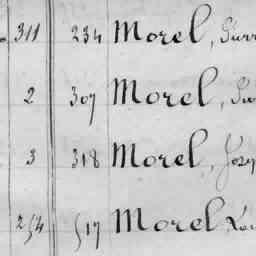 311 234 Morel,
2 307 Morel,
3 318 Morel,
254 517 Morel